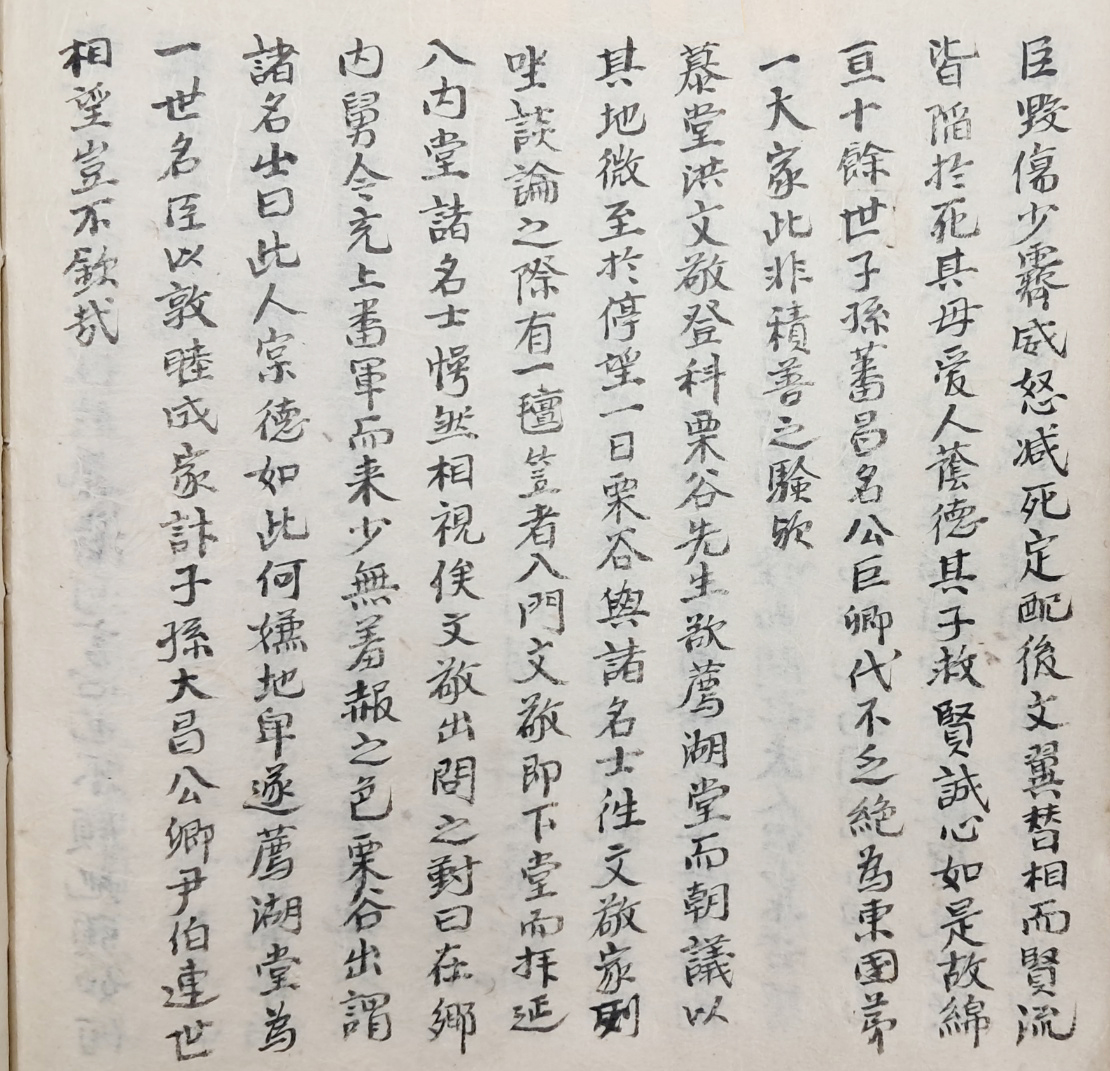 臣毀傷少霽威怒减死定配後文翼替相而賢流
皆陷於死其母愛人蔭德其子救賢誠心如是故綿
亘十餘世子孫蕃昌名公巨卿代不乏絶為東國苐
一大家此非積善之驗欤
慕堂洪文敬登科栗谷先生欲薦湖堂而朝議以
其地微至於停望一日栗谷與諸名士徃文敬家則
坐談論之際有一氊笠者入門文敬即下堂而拜延
入内堂諸名士愕然相視俟文敬出問之對曰在鄉
内舅今充上畨軍而来少無羞赧之色栗谷出謂
諸名士曰此人宗德如此何嫌地卑遂薦湖堂為
一世名臣以敦睦成家計子孫大昌公卿尹伯連世
相望豈不欽哉